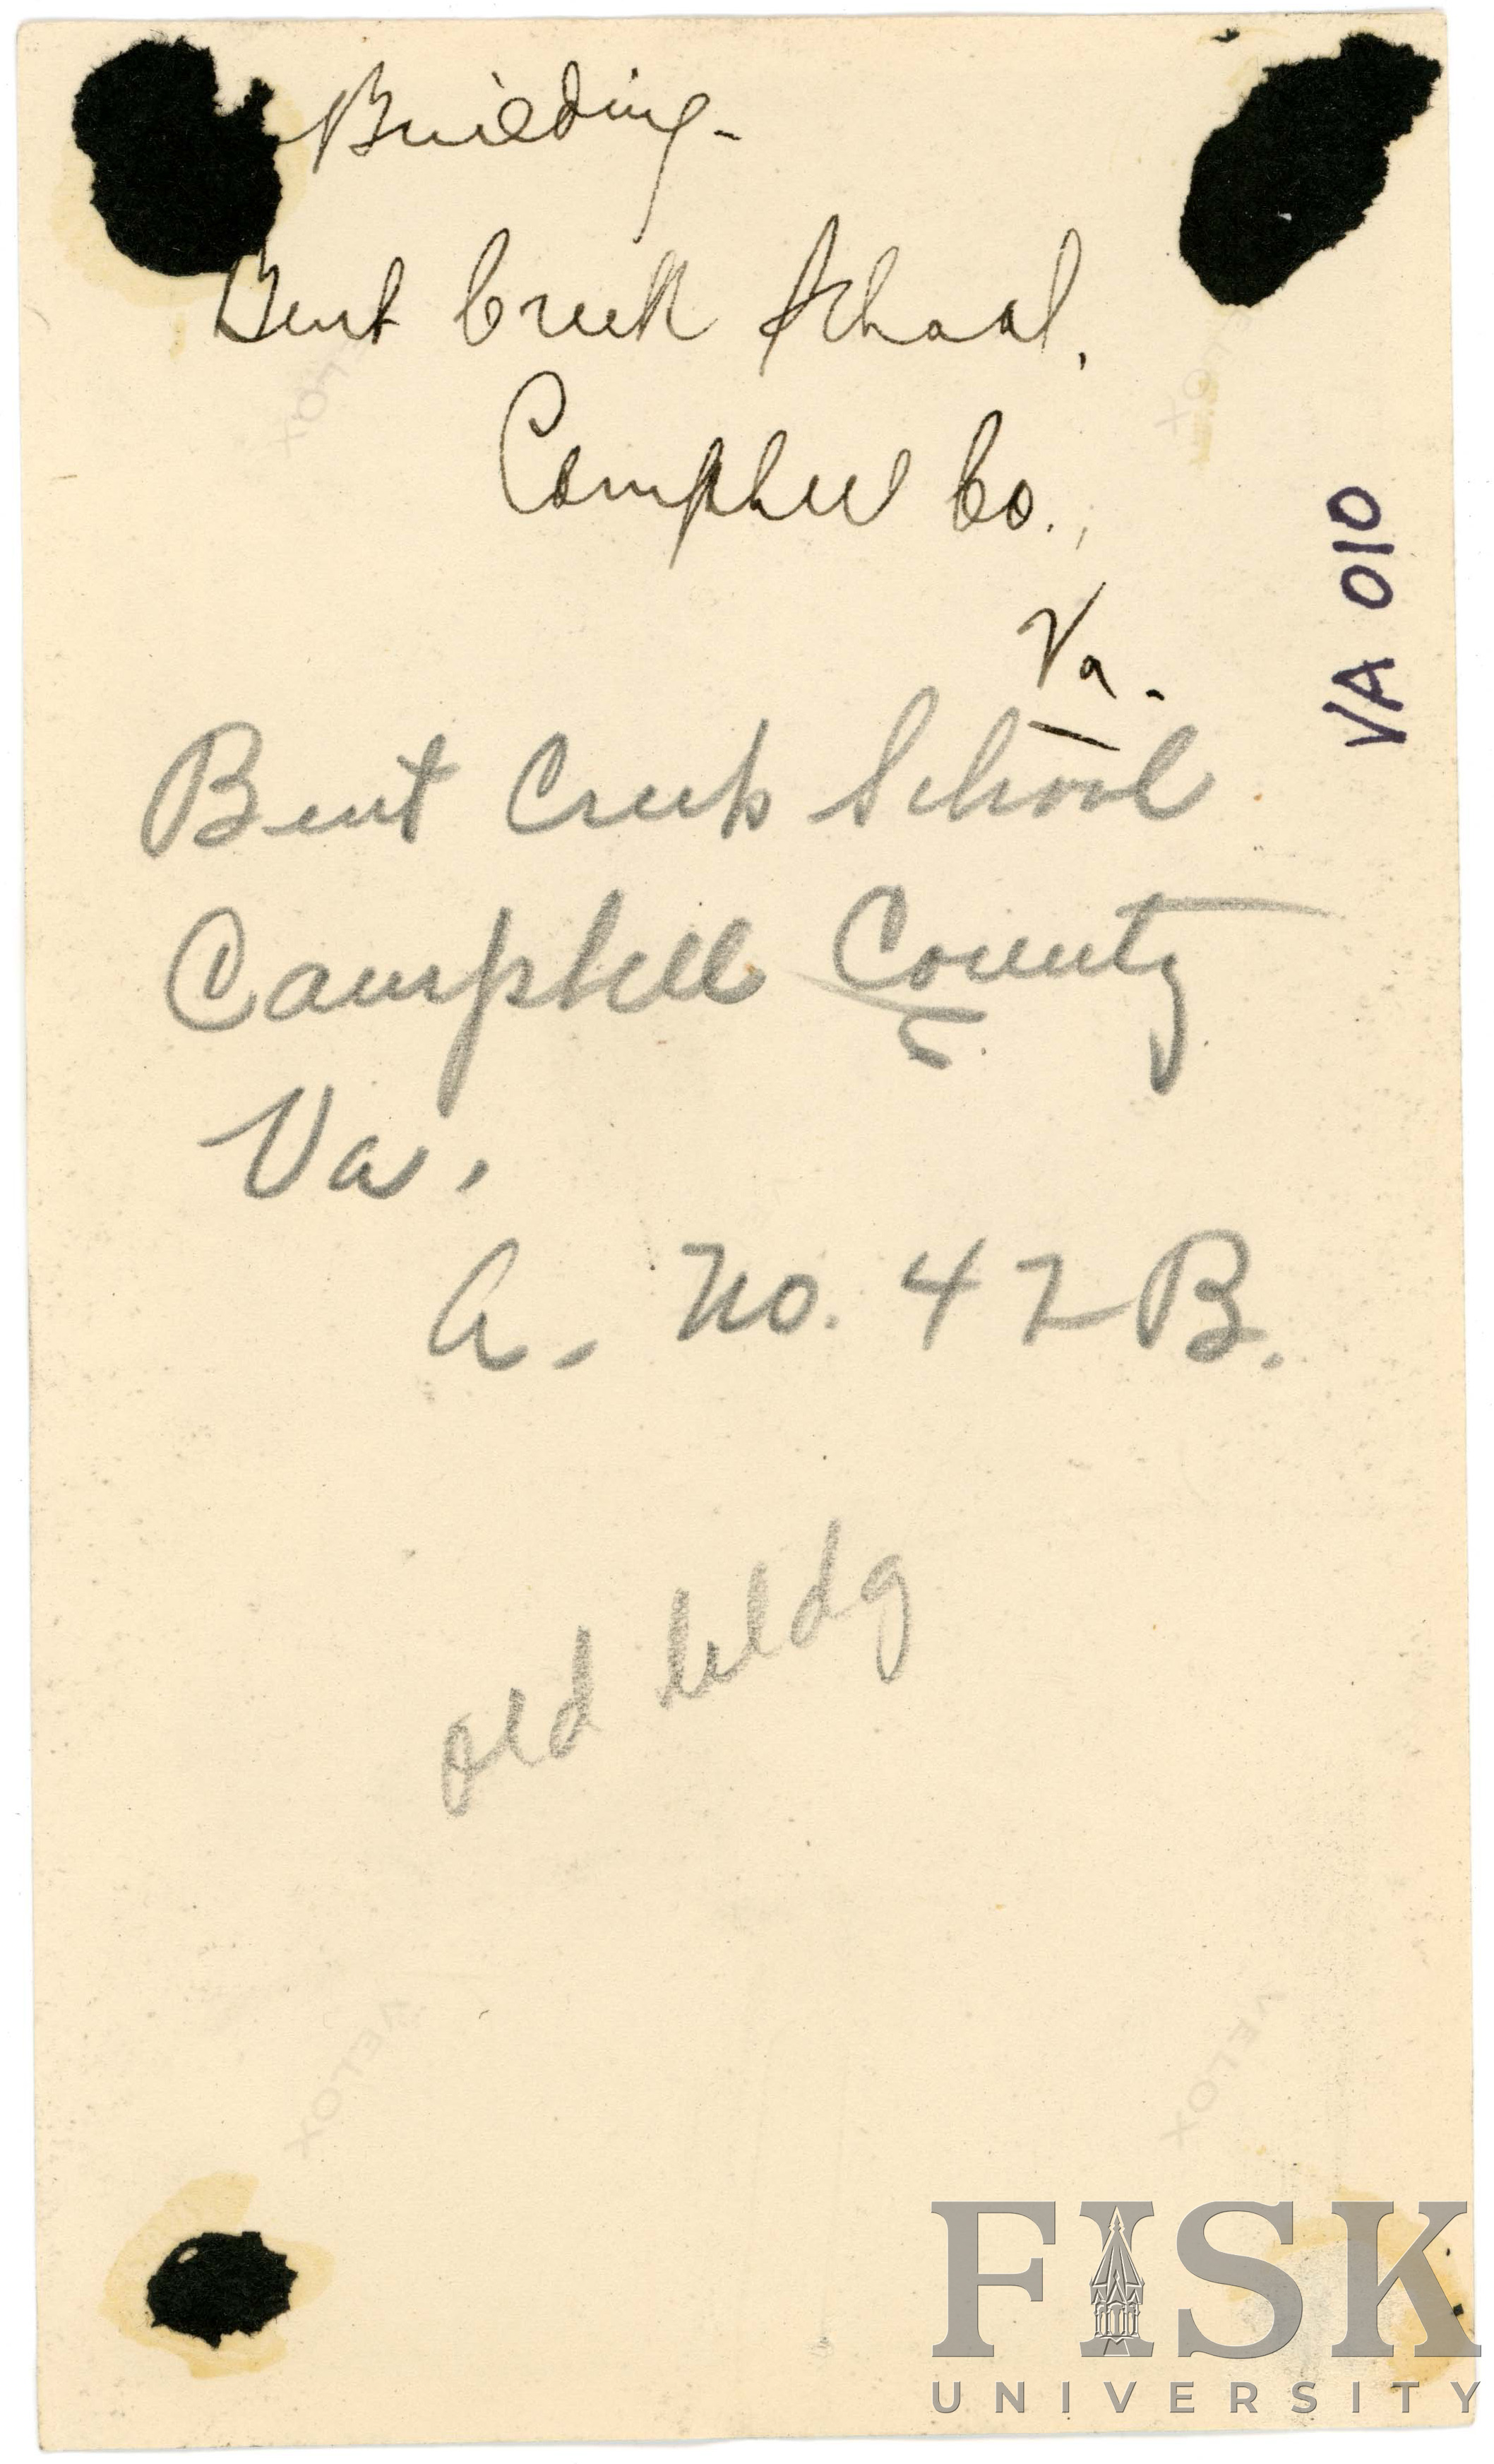 Building-
Bent Creek School,
Campbell Co.,
Va.
VA 010
Bent Creek School
Campbell County
Va.
A. No. 42 B.
old bldg
VELOX
VELOX
VELOX
VELOX
FISK
UNIVERSITY